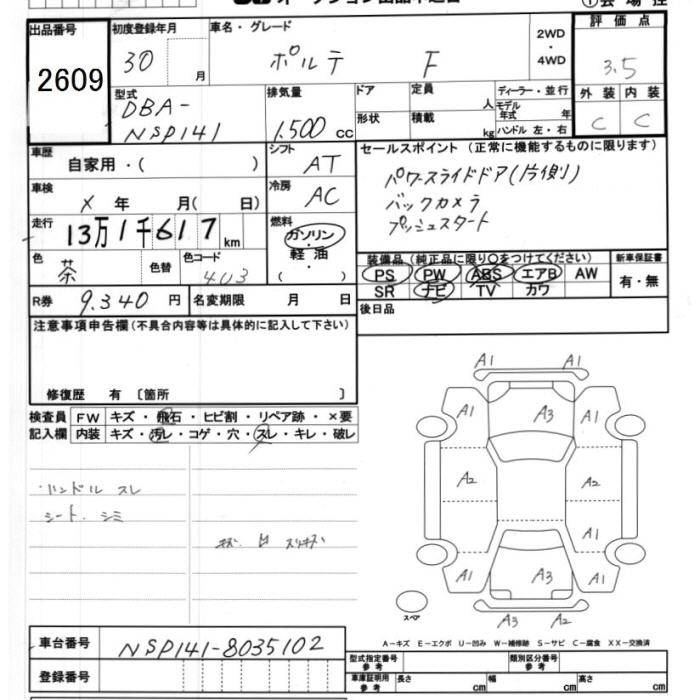 出品番号
2609
初度登録年月
30 月
車名・グレード
ポルテ F
2WD
・
4WD
評価点
3.5
外装 内装
C C
型式
DBA-
NSP141
排気量
1,500 cc
ドア
形状
定員 人
積載 kg
ディーラー・並行
モデル年式 年
ハンドル 左・右
車歴
自家用・( )
シフト
AT
セールスポイント (正常に機能するものに限ります)
パワースライドドア(片側)
バックカメラ
プッシュスタート
車検
X 年 月( 日)
冷房
AC
走行
13万1千617 km
燃料
ガソリン
・
軽油
・
( )
色
茶
色替
色コード
4U3
装備品 (純正品に限り○をつけてください)
PS PW ABS エアB AW
SR ナビ TV カワ
新車保証書
有・無
R券 9.340 円
名変期限 月 日
後日品
注意事項申告欄(不具合内容等は具体的に記入して下さい)
修復歴 有 〔箇所 〕
検査員
記入欄
FW キズ・飛石・ヒビ割・リペア跡・×要
内装 キズ・汚レ・コゲ・穴・スレ・キレ・破レ
・ハンドル スレ
シート. シミ
A1 A1
A1 A3 A1
A2 A2
A1
A1 A3 A1
A3 A2
スペア
A-キズ E-エクボ U-凹み W-補修跡 S-サビ C-腐食 XX-交換済
車台番号
NSP141-8035102
登録番号
型式指定番号
参考
類別区分番号
参考
車庫証明用
参考
長さ cm
幅 cm
高さ cm